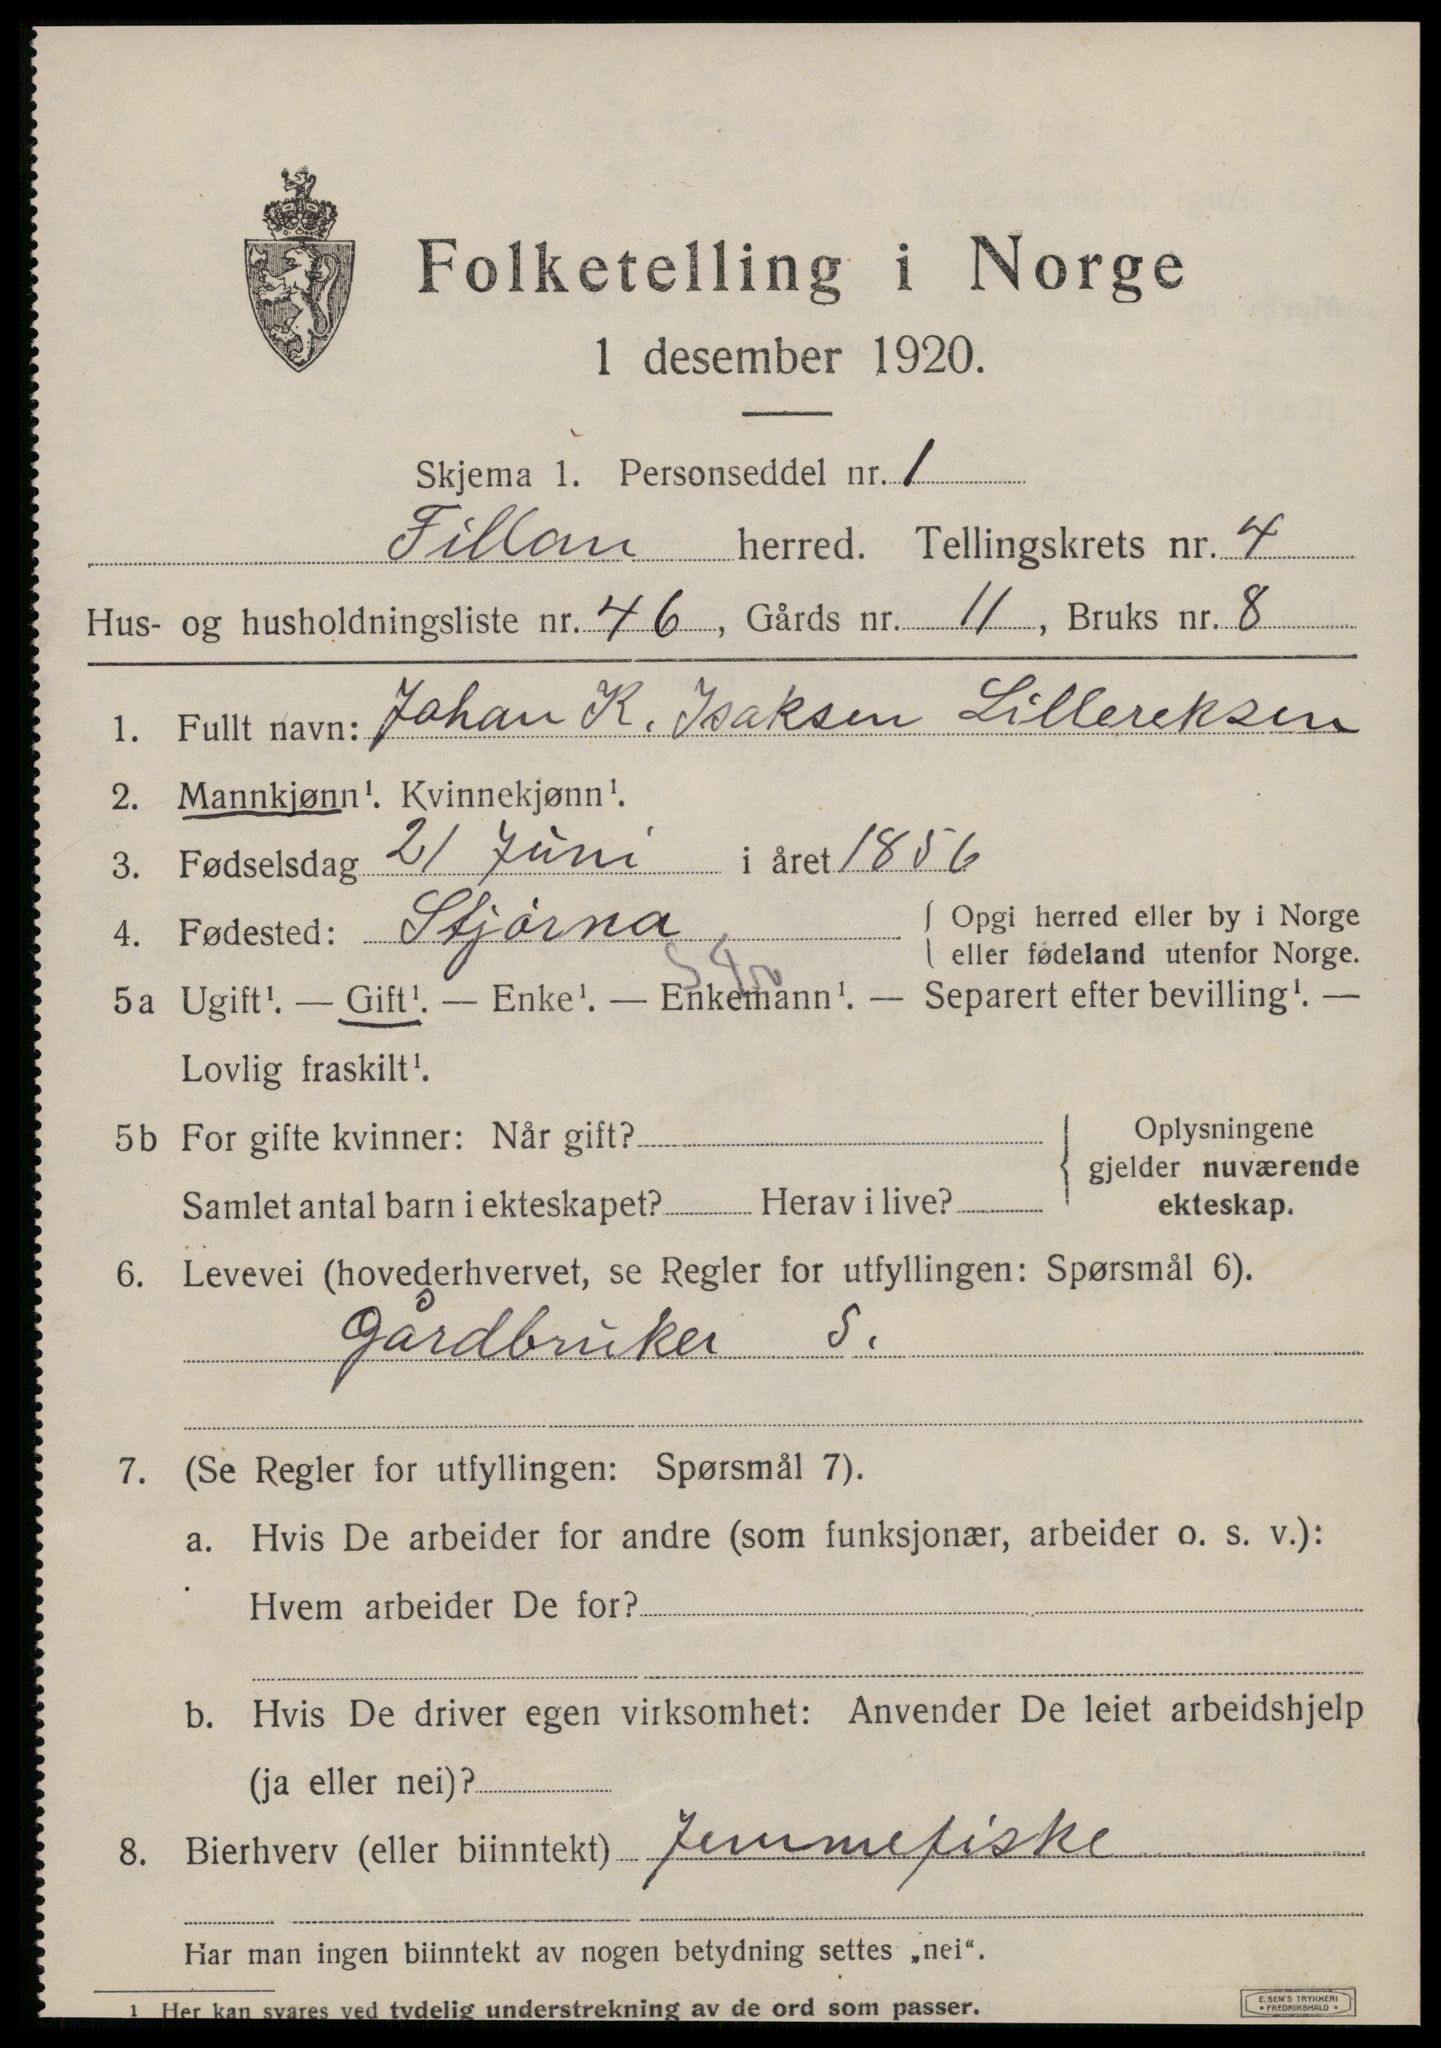 Folketelling i Norge
1 desember 1920.
Skjema 1. Personseddel nr. 1
Fillan herred. Tellingskrets nr. 4
Hus- og husholdningsliste nr. 46, Gårds nr. 11, Bruks nr. 8
1. Fullt navn: Johan K. Isaksen Lillereksen
2. Mannkjønn¹. Kvinnekjønn¹.
3. Fødselsdag 21 Juni i året 1856
4. Fødested: Stjørna { Opgi herred eller by i Norge
eller fødeland utenfor Norge.
5a Ugift¹. — Gift¹. — Enke¹. — Enkemann¹. — Separert efter bevilling¹. —
Lovlig fraskilt¹.
5b For gifte kvinner: Når gift?
Samlet antal barn i ekteskapet? Herav i live?
Oplysningene
gjelder nuværende
ekteskap.
6. Levevei (hovederhvervet, se Regler for utfyllingen: Spørsmål 6).
Gårdbruker S.
7. (Se Regler for utfyllingen: Spørsmål 7).
a. Hvis De arbeider for andre (som funksjonær, arbeider o. s. v.):
Hvem arbeider De for?
b. Hvis De driver egen virksomhet: Anvender De leiet arbeidshjelp
(ja eller nei)?
8. Bierhverv (eller biinntekt) Jemmefiske
Har man ingen biinntekt av nogen betydning settes „nei“.
¹ Her kan svares ved tydelig understrekning av de ord som passer.
E. SEM'S TRYKKERI
FREDRIKSHALD